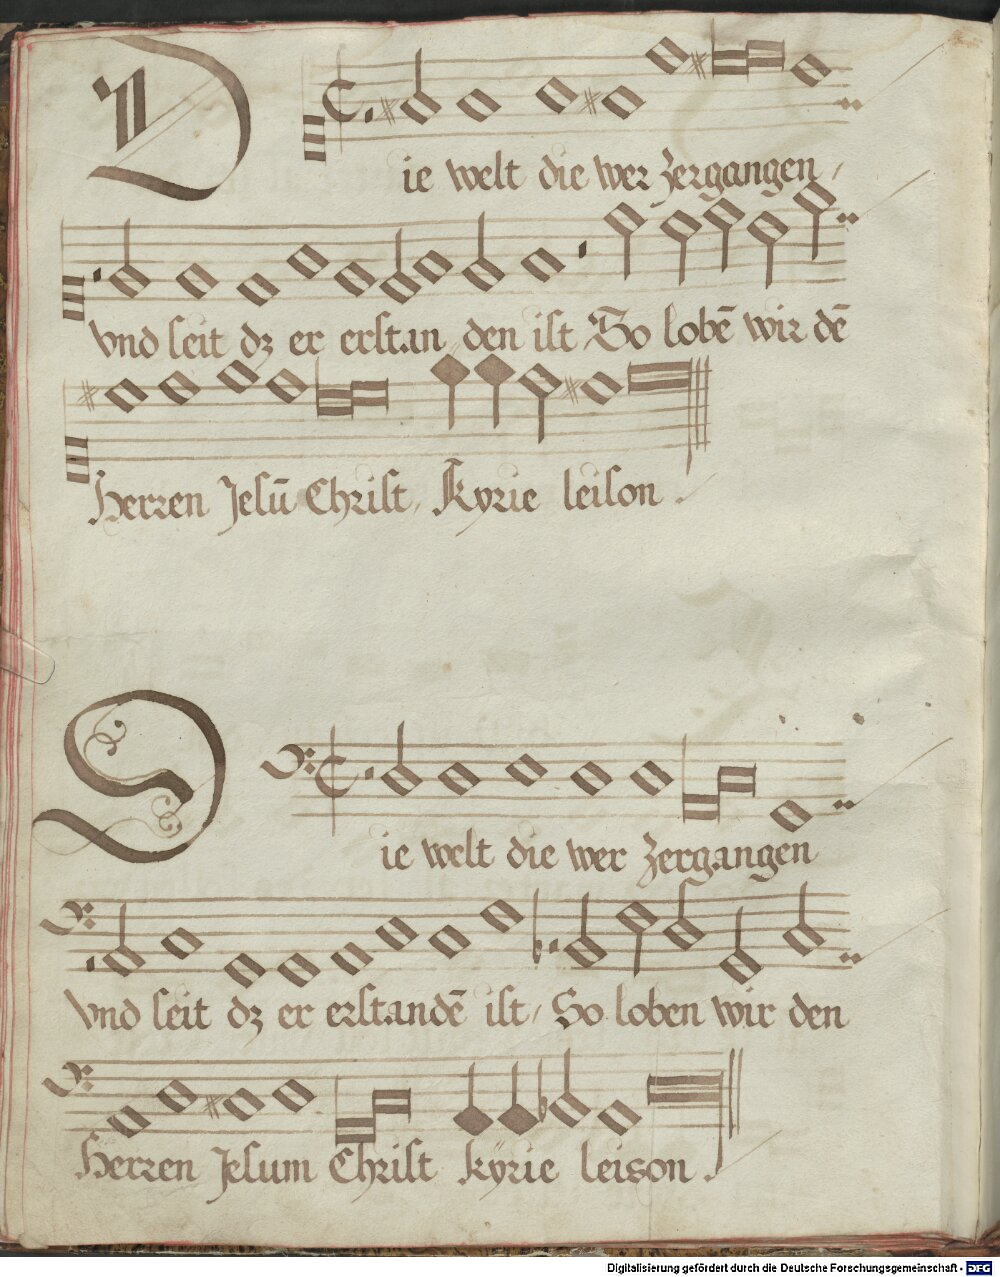 Die welt die wer zergangen /
vnd seit dz er erstan den ist / So lobē wir dē
Herren Jesū Christ, Kyrie leison .
Die welt die wer zergangen
vnd seit dz er erstandē ist / So loben wir den
Herren Jesum Christ kÿrie leison .
Digitalisierung gefördert durch die Deutsche Forschungsgemeinschaft - DFG